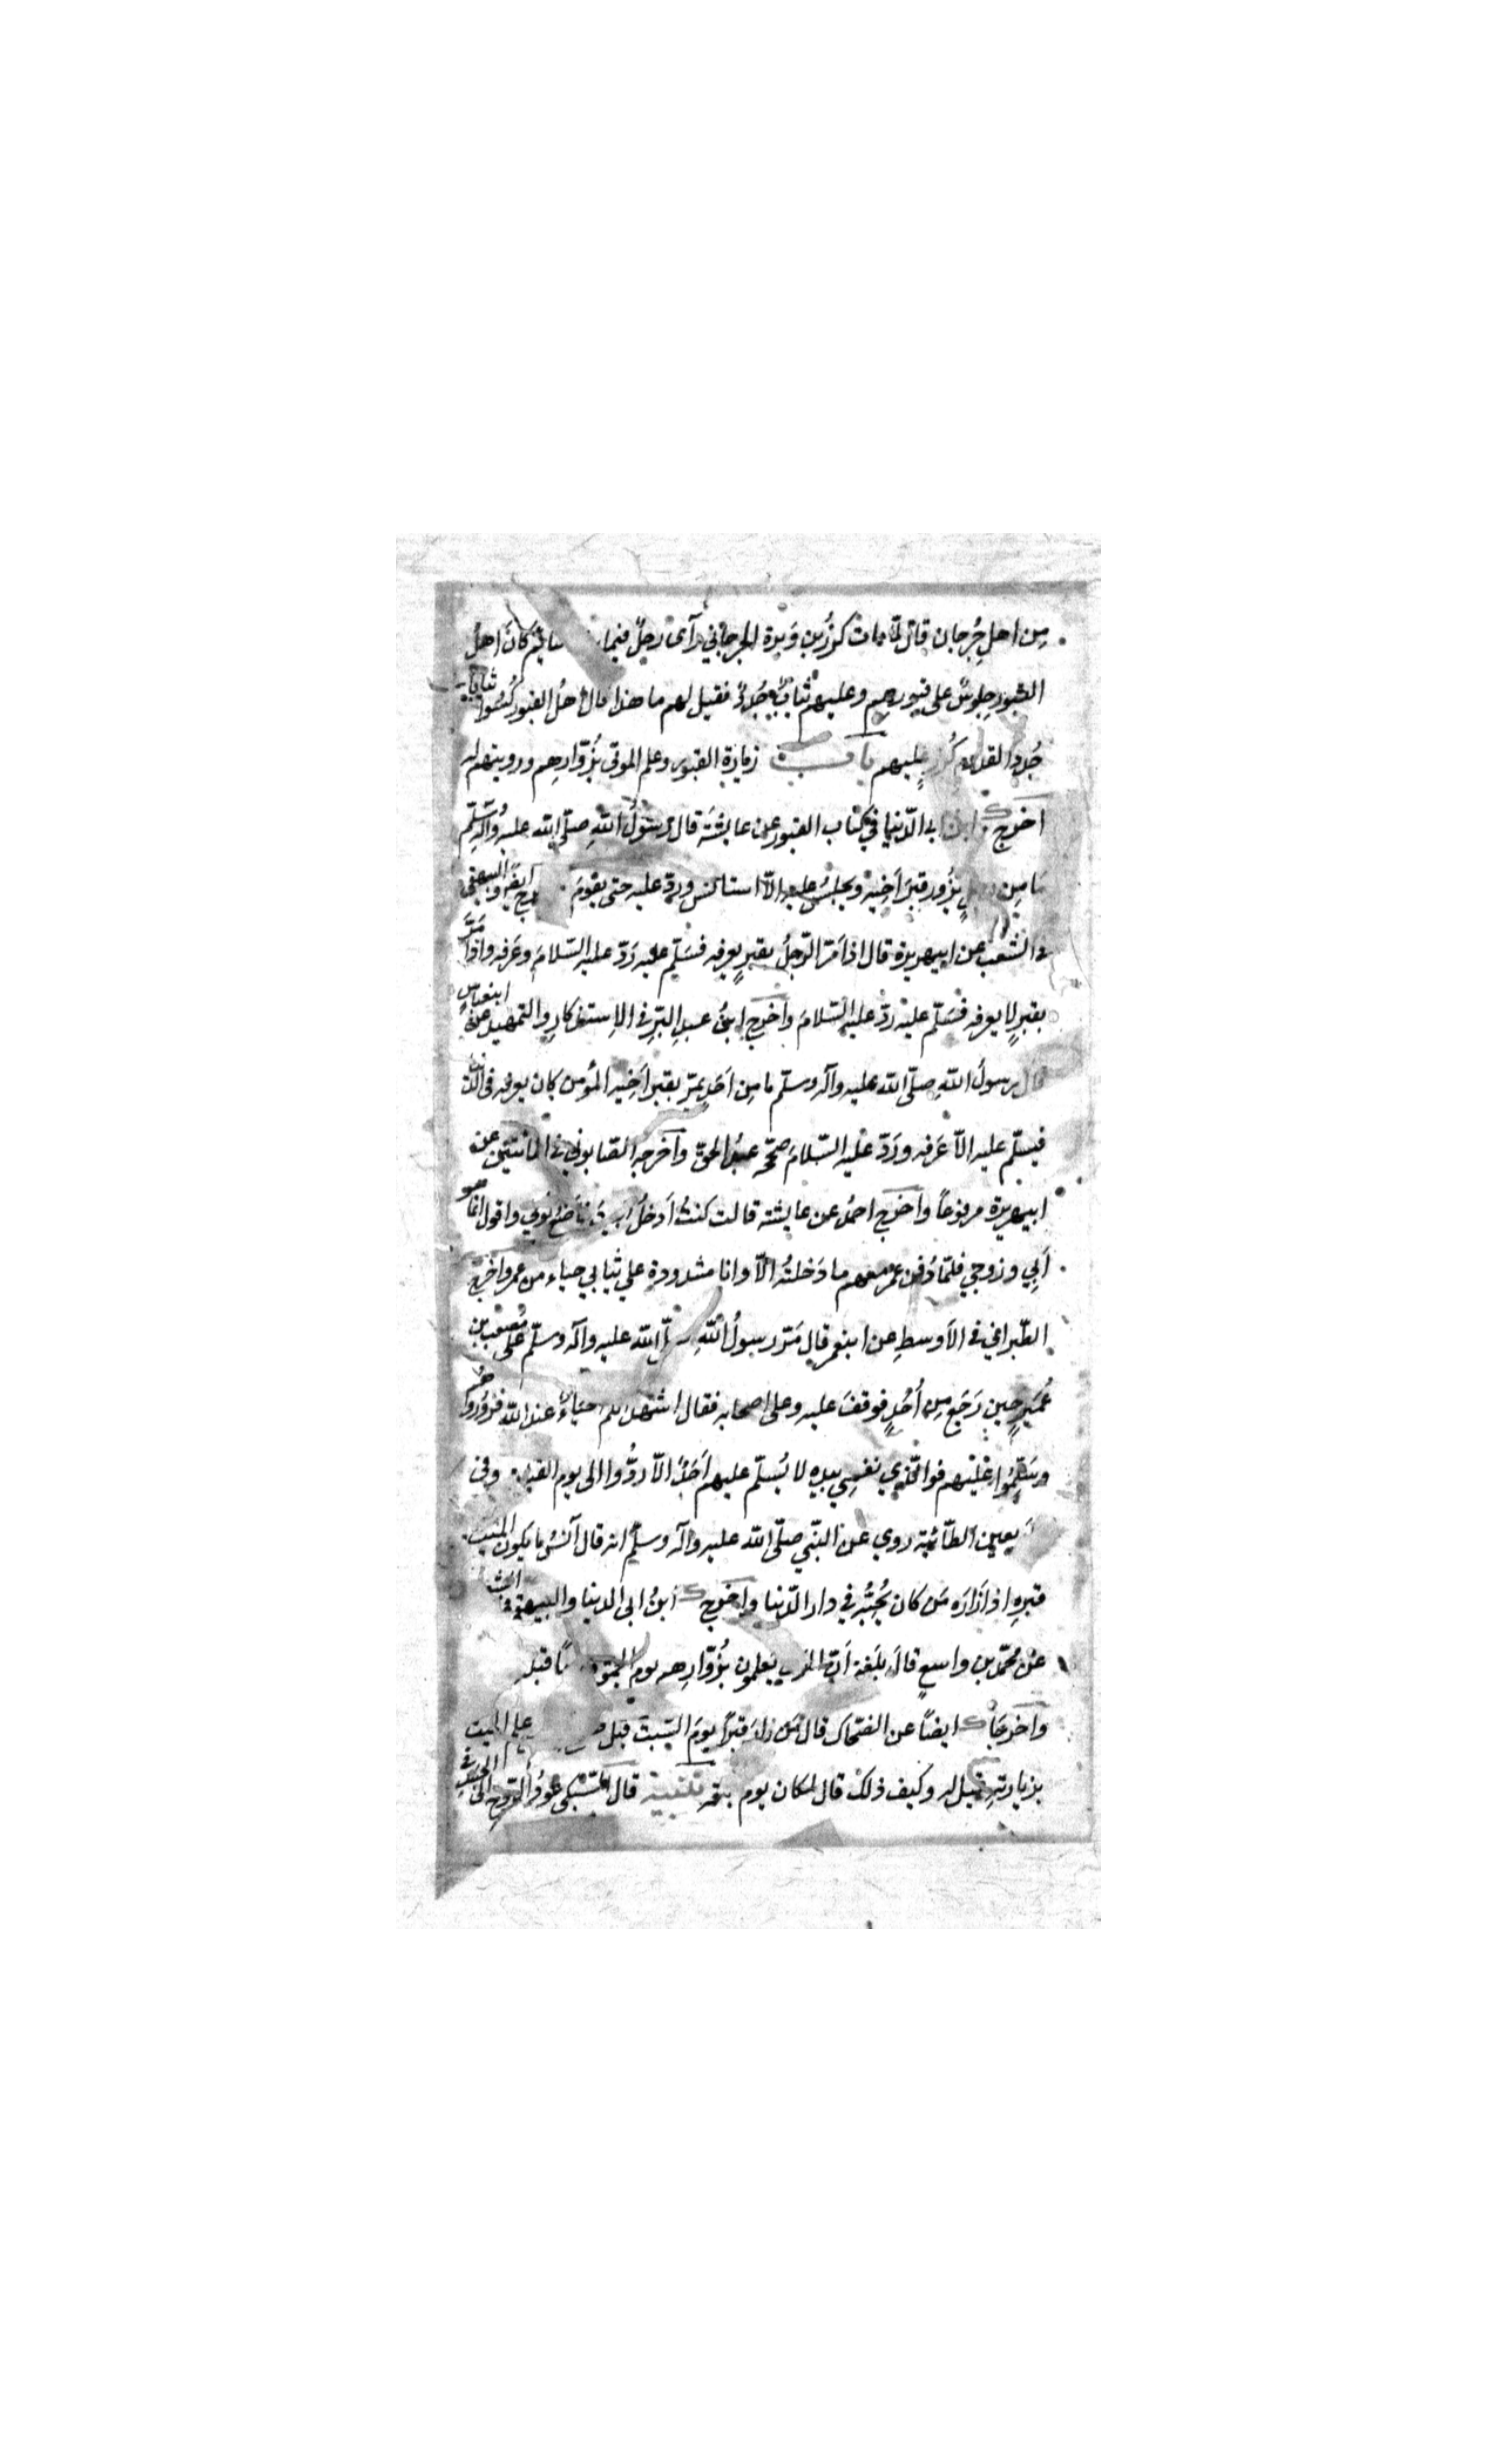 مِن اهلِ جُرجان قال لمّا مات كرزُ بن وَبرة الجرجاني رآى رجلٌ فيما كانَ اهلُ
القبور جلوسٌ على قبورهم وعليهم ثيابٌ جُدُدٌ فقيل لهم ما هذا قال اهلُ القبور كُسُوا ثيابا
جُدداً لقدوم كُرز عليهم باب زيارة القبور وعلم الموتى بزُوّارهِم ورويتهم له
اخرج ابن ابي الدّنيا في كتاب القبور عن عايشة قال رسُولُ اللهِ صلّى الله عليه وآلهِ وسلّم
مَا مِن رجلٍ يزُور قبرَ اَخيه ويجلسُ عليه الاّ استانس وردّ عليه حتى يقومَ واخرج ايضًا والبيهقي
في الشعب عن ابيهريرة قال اذا مَرّ الرّجلُ بقبرٍ يعرفه فسَلّم عليه رَدّ عليه السّلامَ وعَرفه واذا مَرَّ
بقبرٍ لا يعرفه فسَلّم عليه ردّ عليه السّلامَ واخرج ابنُ عبدِ البرّ في الاِستذكارِ والتمهيد عن ابنعباسٍ
قال رسولُ اللهِ صلّى الله عليه وآله وسلّم ما مِن اَحَدٍ يمرّ بقبر اَخيه المؤمن كان يعرفه في الدنيا
فيسلّم عليه الاّ عَرفه ورَدّ عليه السّلامَ صحّحه عبدُ الحقّ واَخرجه الصّابوني في المائتين عن
ابيهريرة مرفوعاً واخرج احمدُ عن عايشة قالت كنتُ اَدخلُ البيتَ فاَضعُ ثوبي واقول انّما هو
اَبي وزوجي فلمّا دُفن عمرُ معهم ما دَخلتُه الاّ وانا مشدودة علي ثيابي حياء من عمر واخرج
الطّبراني في الاَوسطِ عن ابنعمر قال مَرّ رسولُ اللهِ صلّى الله عليه وآله وسلّم على مُصعب بن
عُمَيرٍ حين رَجَع مِن اُحُدٍ فوقفَ عليه وعلى اصحابه فقال اشهد انكم احيَاءٌ عند الله فزُورُوهُم
وسَلّمُوا عَليهم فوالّذي نفسي بيده لا يُسلّم عليهم اَحَدٌ الاّ ردُّوا الى يوم القيمة وفي
اربعين الطّائية روي عن النّبي صلّى الله عليه وآله وسلّم انه قال آنسُ ما يكون الميّت في
قبرهِ اذا زَارَه مَن كان يُحِبُّه في دار الدّنيا واخرج ابنُ ابي الدنيا والبيهقي في الشعب
عن محمّد بن واسعٍ قالَ بلَغني اَنّ الموتى يَعلمون بزُوّارِهم يوم الجمعة ويومًا قبله
واخرجَا ايضاً عن الضحّاك قال مَن زارَ قبراً يومَ السّبت قبل علم الميت
بزيارتهِ قيل له وكيف ذلك قال لمكان يوم الجمعة تنبيه قال السّبكي عودُ الرّوحِ الى الجسد في